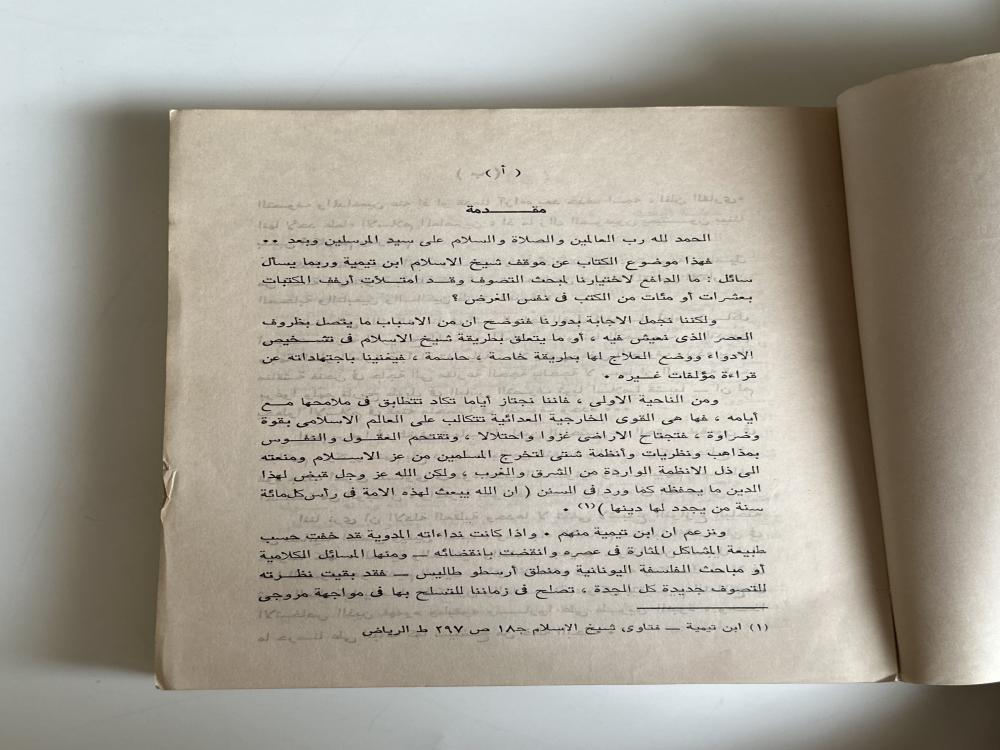 ( أ )
مقـــــدمة
الحمد لله رب العالمين والصلاة والسلام على سيد المرسلين وبعد ••
فهذا موضوع الكتاب عن موقف شيخ الاسلام ابن تيمية وربما يسأل
سائل : ما الدافع لاختيارنا لمبحث التصوف وقد امتلأت أرفف المكتبات
بعشرات أو مئات من الكتب فى نفس الغرض ؟
ولكننا نجمل الاجابة بدورنا فنوضح ان من الاسباب ما يتصل بظروف
العصر الذى نعيش فيه ، أو ما يتعلق بطريقة شيخ الاسلام فى تشخيص
الادواء ووضع العلاج لها بطريقة خاصة ، حاسمة ، فيغنينا باجتهاداته عن
قراءة مؤلفات غيره •
ومن الناحية الاولى ، فاننا نجتاز أياما تكاد تتطابق فى ملامحها مع
أيامه ، فها هى القوى الخارجية العدائية تتكالب على العالم الاسلامى بقوة
وضراوة ، فتجتاح الاراضى غزوا واحتلالا ، وتقتحم العقول والنفوس
بمذاهب ونظريات وأنظمة شتى لتخرج المسلمين من عز الاسلام ومنعته
الى ذل الانظمة الواردة من الشرق والغرب ، ولكن الله عز وجل قيض لهذا
الدين ما يحفظه كما ورد فى السنن ( ان الله يبعث لهذه الامة فى رأس كل مائة
سنة من يجدد لها دينها )(١) •
ونزعم ان ابن تيمية منهم • واذا كانت نداءاته المدوية قد خفت حسب
طبيعة المشاكل المثارة فى عصره وانقضت بانقضائه – ومنها المسائل الكلامية
أو مباحث الفلسفة اليونانية ومنطق أرسطو طاليس – فقد بقيت نظرته
للتصوف جديدة كل الجدة ، تصلح فى زماننا للتسلح بها فى مواجهة مروجى
(١) ابن تيمية – فتاوى شيخ الاسلام جـ١٨ ص ٢٩٧ ط الرياض